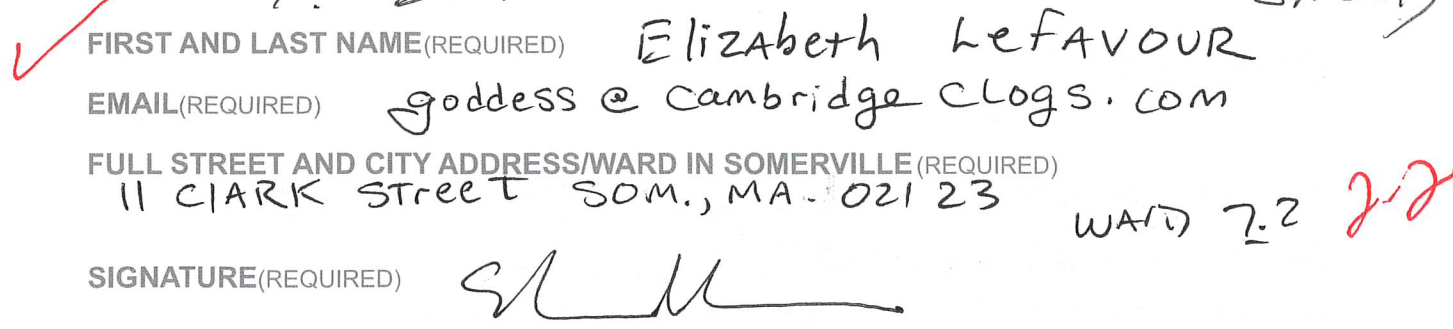 FIRST AND LAST NAME(REQUIRED) ElizAbeth LeFAVOUR
EMAIL(REQUIRED) goddess @ cambridge Clogs. com
FULL STREET AND CITY ADDRESS/WARD IN SOMERVILLE(REQUIRED)
11 ClARK STreeT SOM., MA. 02123
WARD 2.2 2-2
SIGNATURE(REQUIRED)